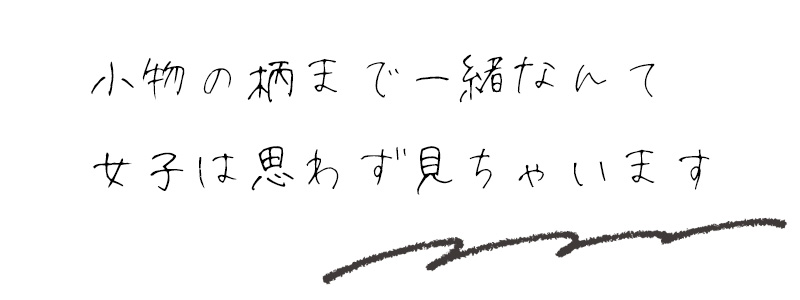 小物の柄まで一緒なんて
女子は思わず見ちゃいます